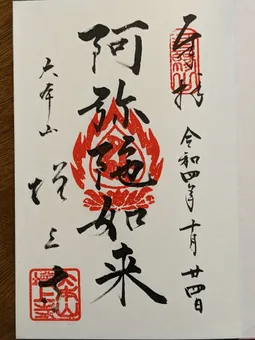 奉拝
令和四年十月廿四日
阿弥陀如来
大本山
増上寺